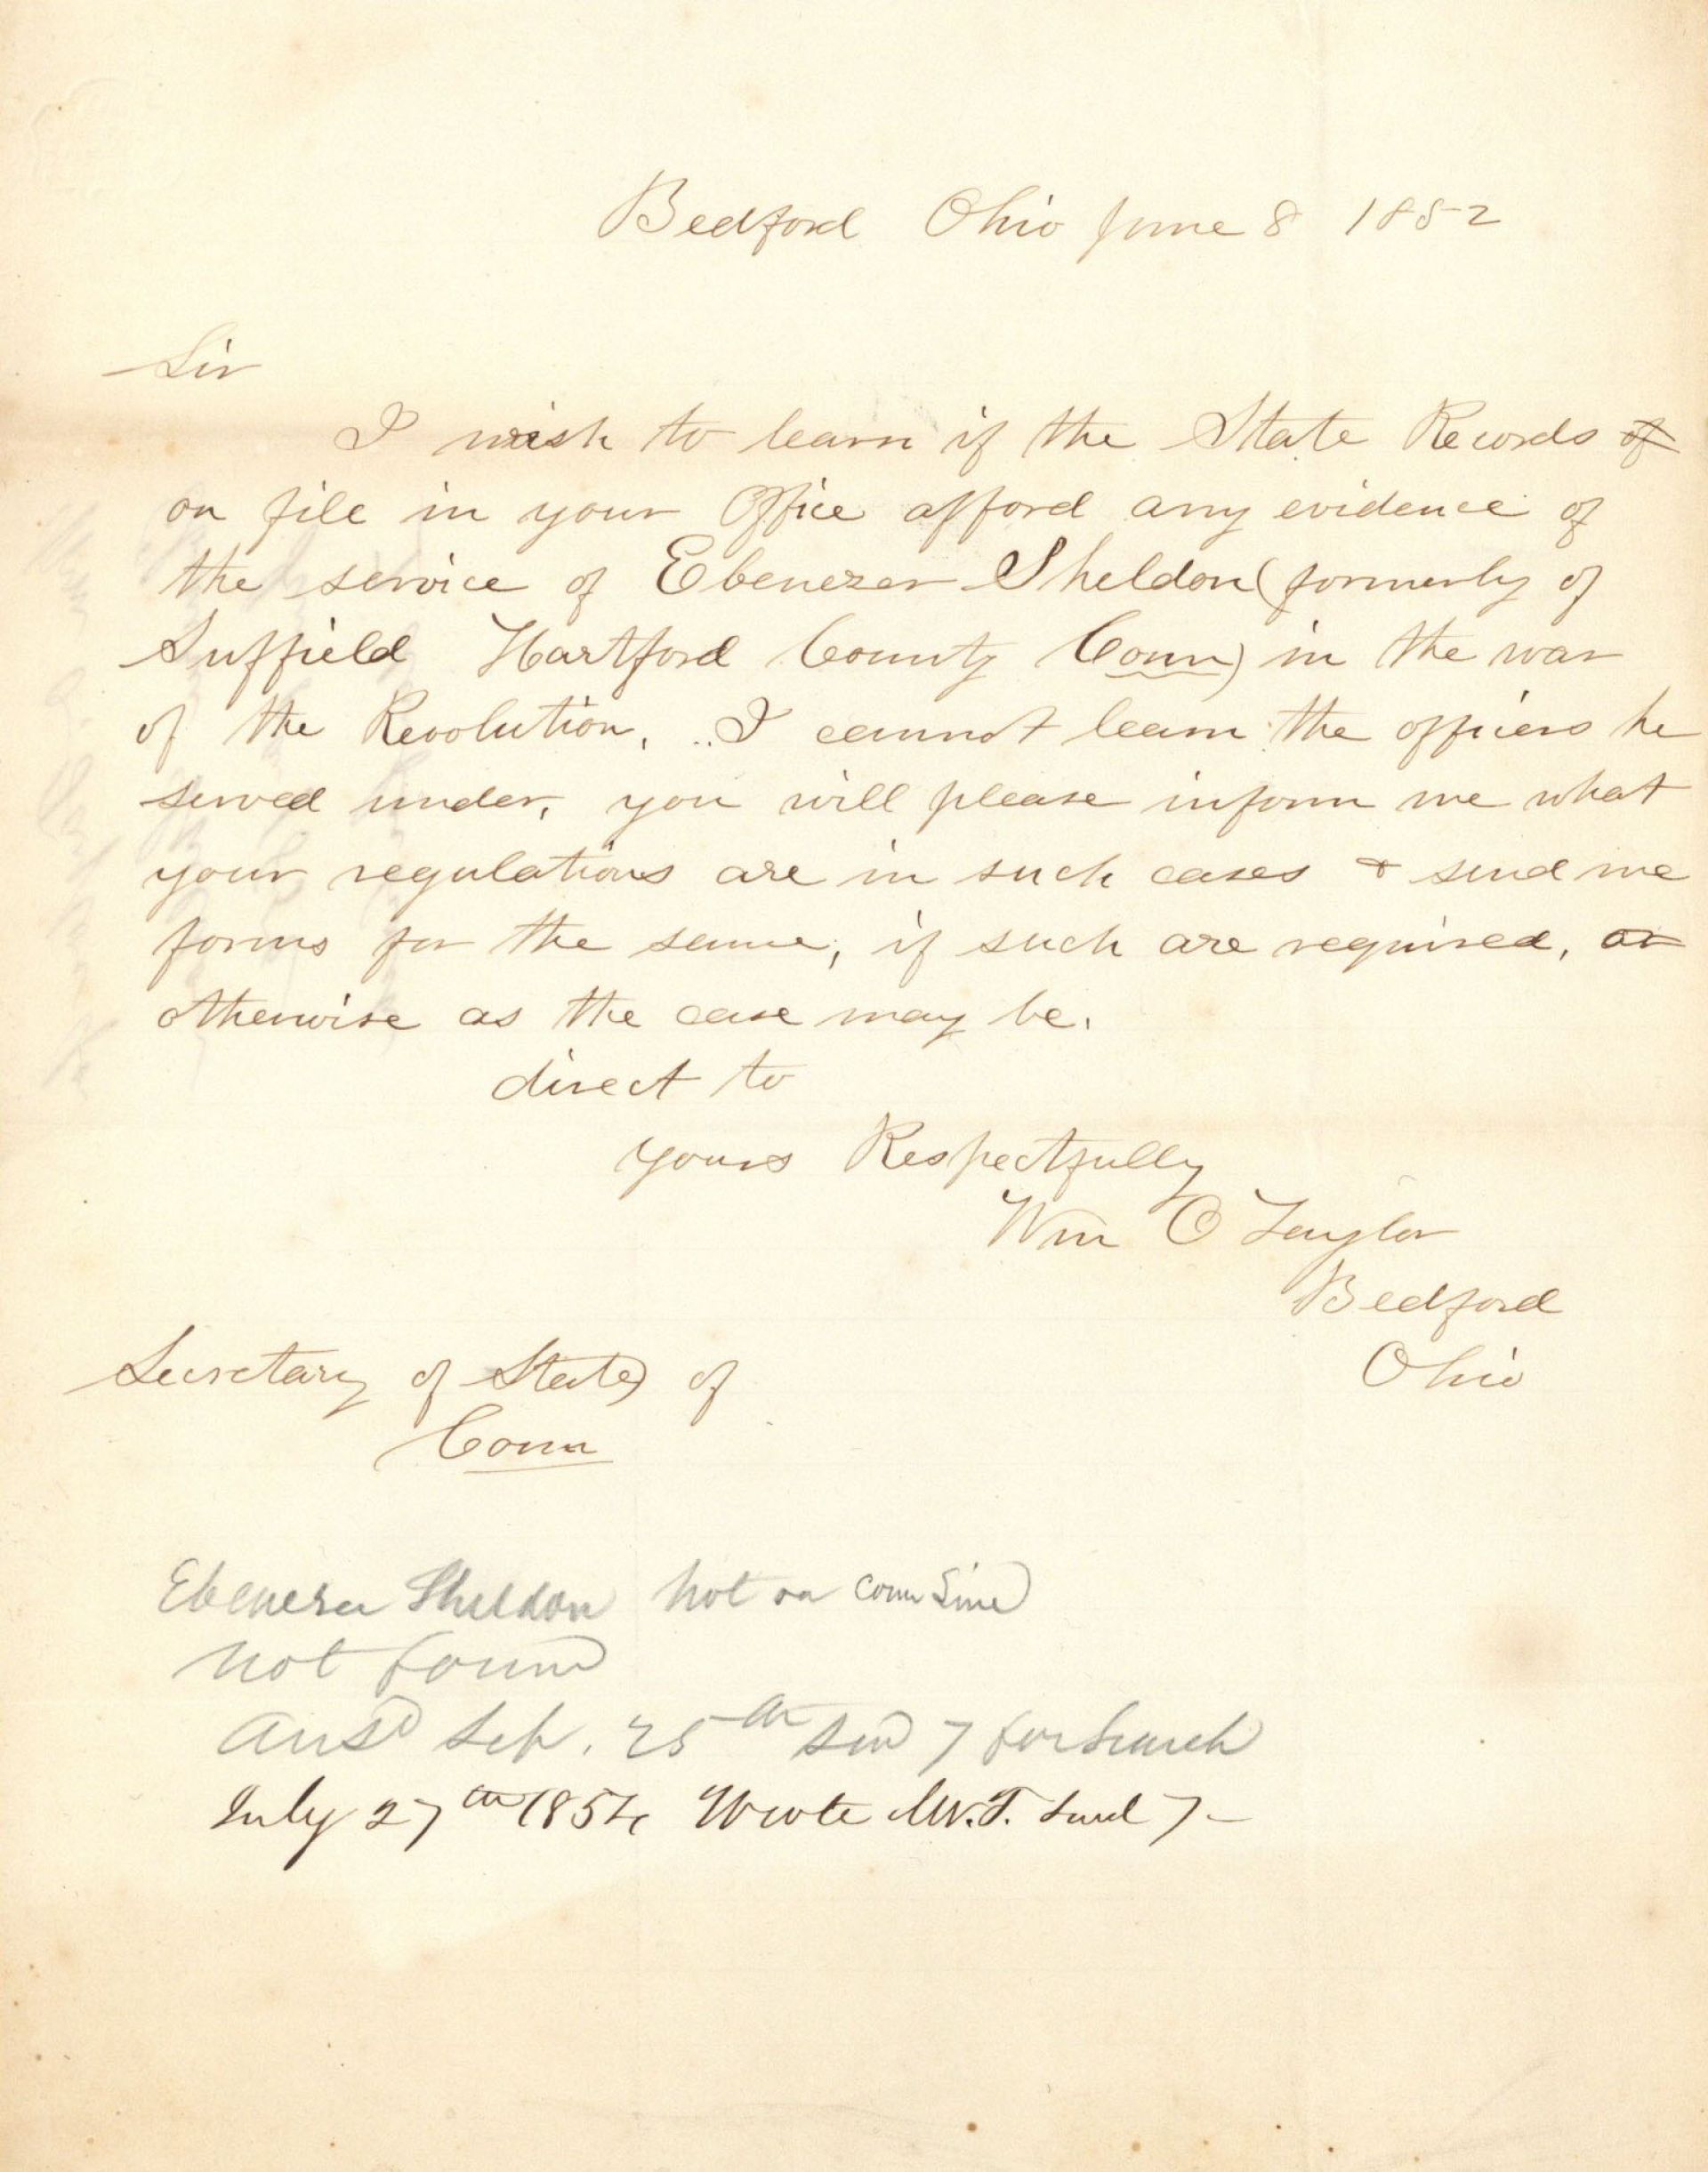 Bedford Ohio June 8 1852
Sir
I wish to learn if the State Records of
on file in your Office afford any evidence of
the service of Ebenezer Sheldon (formerly of
Suffield Hartford County Conn) in the war
of the Revolution, I cannot learn the officers he
served under, you will please inform me what
your regulations are in such cases & send me
forms for the same, if such are required, or
otherwise as the case may be.
direct to
yours Respectfully
Wm O Taylor
Bedford
Ohio
Secretary of State of
Conn
Ebenezer Sheldon not on Conn Line
not found
Ansd Sep. 25th Send 7 for Search
July 27th 1854 Wrote Mr. T. Send 7-